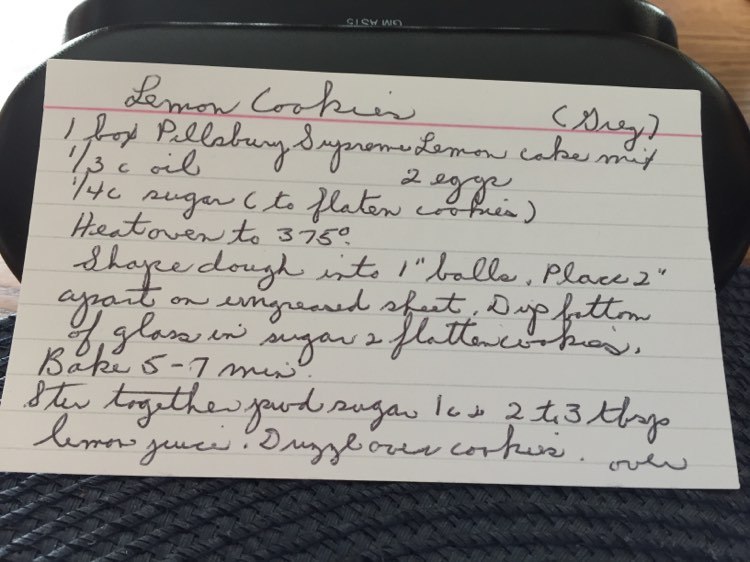 GM AST5
Lemon Cookies (Greg)
1 box Pillsbury Supreme Lemon cake mix
1/3 c oil 2 eggs
1/4 c sugar (to flaten cookies)
Heat oven to 375°.
Shape dough into 1" balls. Place 2"
apart on ungreased sheet. Dip bottom
of glass in sugar & flatten cookies.
Bake 5-7 min.
Stir together pwd sugar 1c & 2 to 3 tbsp
lemon juice. Drizzle over cookies. over